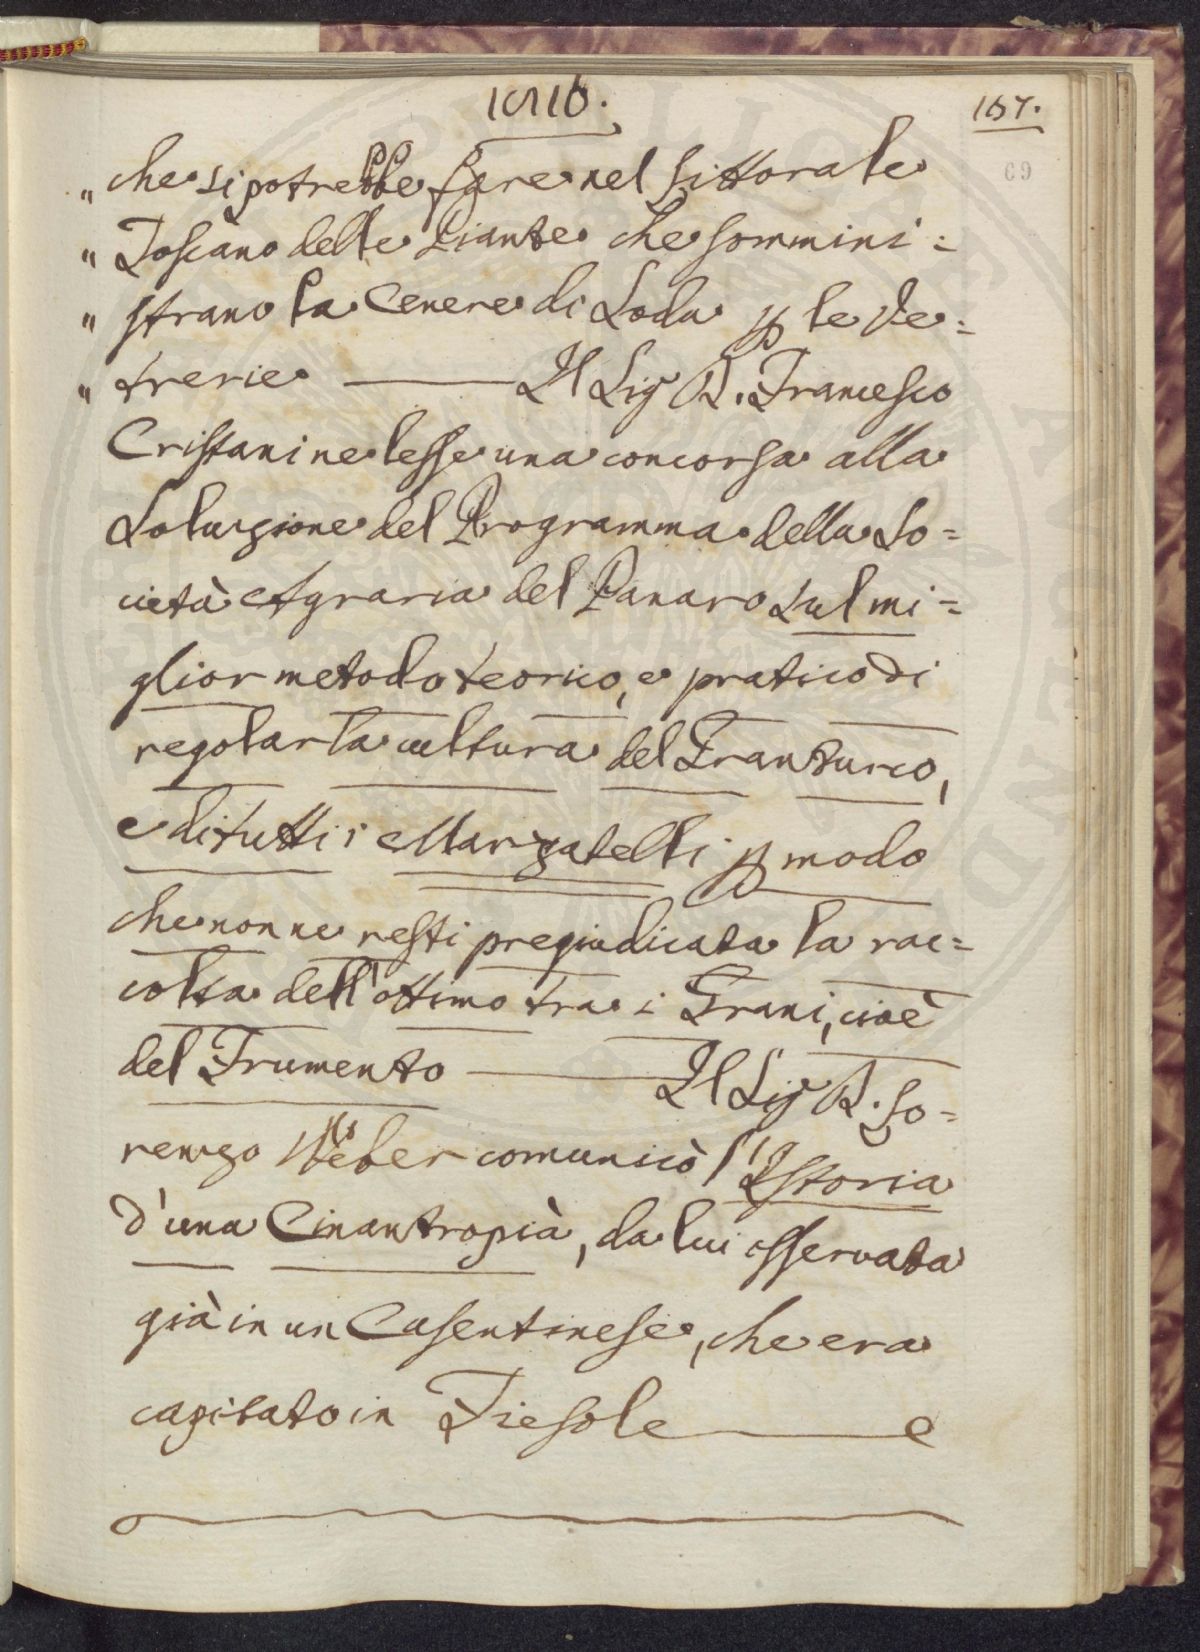 167.
69
„ che si potrebbe fare nel Littorale
„ Toscano delle Piante che sommini=
„ strano la Cenere di Soda p le Ve=
„ trerie —— Il Sig D. Francesco
Cristani ne lesse una concorsa alla
Soluzione del Programma della So=
cietà Agraria del Panaro sul mi=
glior metodo teorico, e pratico di
regolar la cultura del Granturco,
e di tutti i Marzatelli p modo
che non ne resti pregiudicata la rac=
colta dell'ottimo tra i Grani, cioè
del Frumento —— Il Sig D. Lo=
renzo Weber comunicò l'Istoria
d'una Cinantropià, da lui osservata
già in un Casentinese, che era
capitato in Fiesole —— e